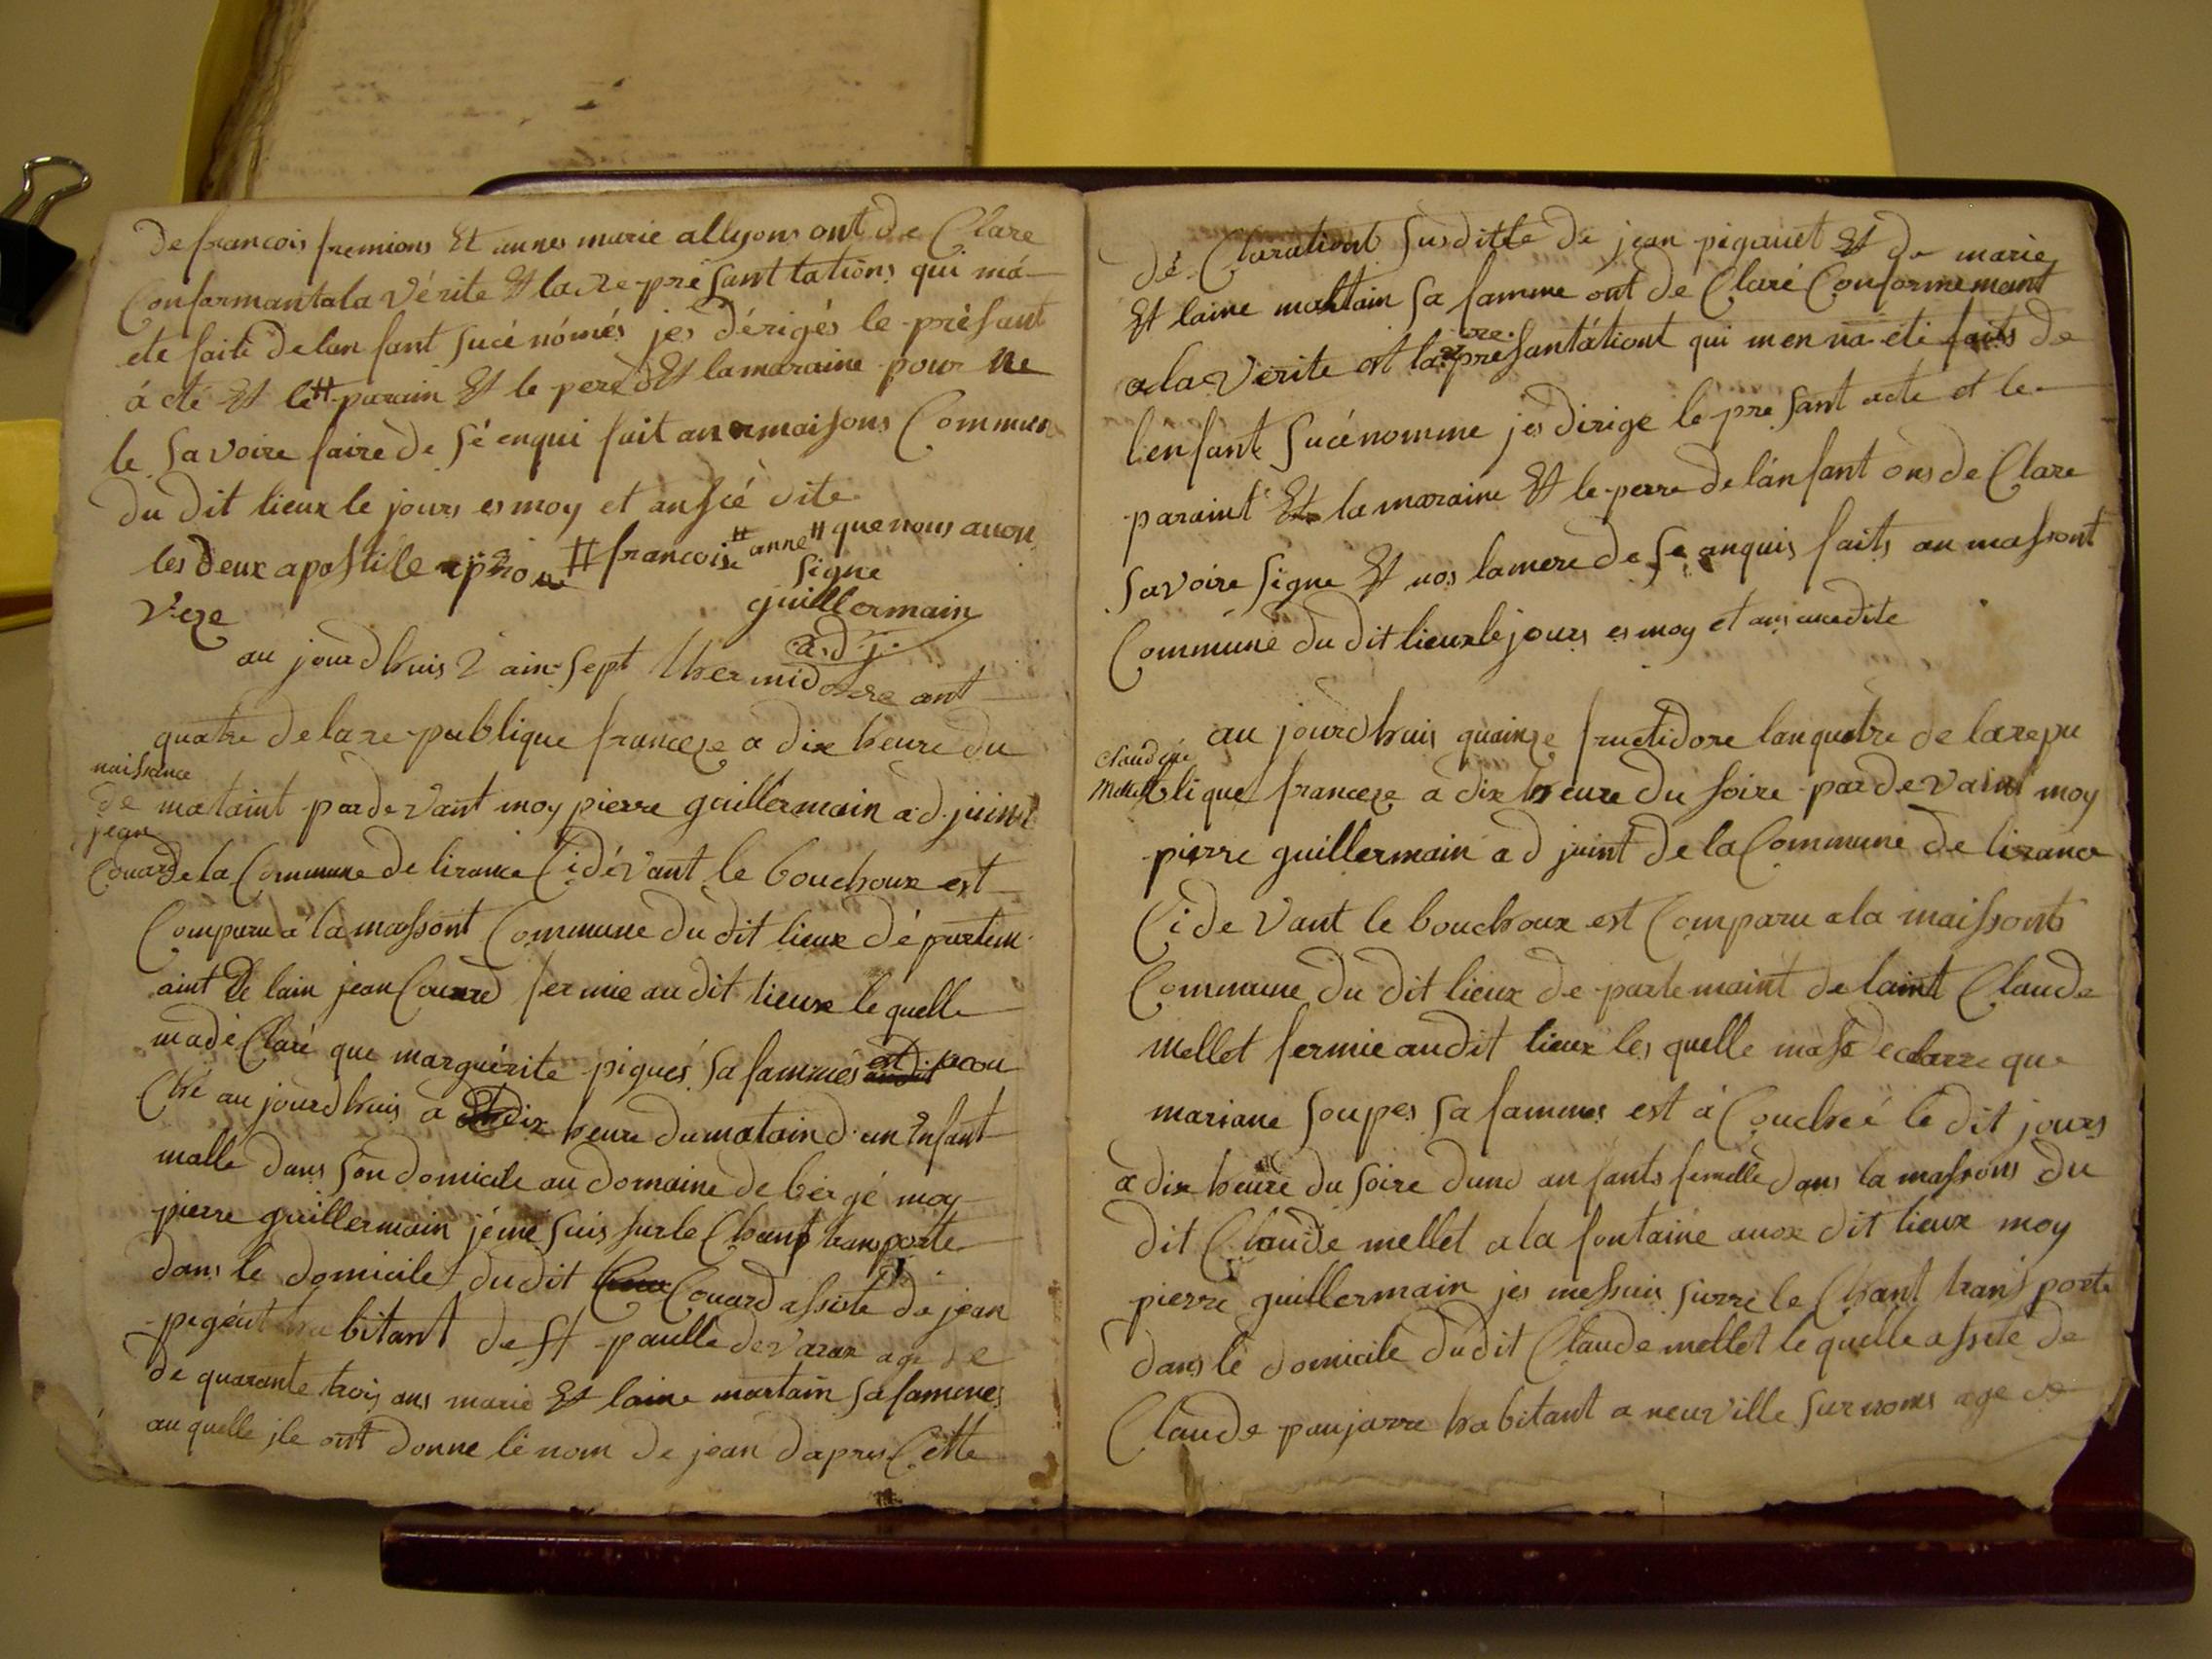 de francois fremions Et annes marie allyons ont de Clare
Conformantala vérite Et la Re-présant tations qui má-
ete faite delan fant Sucé nómés jes dérigés le présant
ácté Et le # parain Et le pere d Et lamaraine pour Ne
le Savoire faire de Sé enqui fait an maisons Commun
du dit lieux le jours es moy et ansié dite
les deux apostile # francois # anne # que nous avon
Signe
guillermain
a.d.j.
au jourdhuis 2 sept thermidore ant
quatre dela re-publique franceze a dix heure du
naissance
de
jean
Couard
mataint pardevant moy pierre guillermain ad.juint
de la Commune de lirance Cidévant le bouchoux est
Comparu a la massont Commune du dit lieux départem
aint De lain jean Couard fermie au dit lieux le quelle
madé Claré que marguérite piqués Sa fammes est acou
Ché au jourdhuis a dix heure du matain d'un Enfant
malle dans Son domicile au domaine de bergé moy
pierre guillermain jéme Suis Surle Chant transporte
dans le domicile du dit Couard assiste de jean
pegéut habitant de St paulle de varax age de
de quarante trois ans marié Et laine martain Sa fammes
au quelle ile ont donne le nom de jean dapres Cette
dé-Clarationt Susditte de jean pigauet Et de marie
Et laine martain Sa famme ont de Claré Conformemant
a la Vérite et la re présantátiont qui men na éte faits de
lenfant Sucénomme jes dirige le pre Sant acte et le
paraint Et la maraine Et le perre de lánfant ons de Clare
Savoire Signe Et nos lamere de Se anquis faits au massont
Commune du dit lieux le jours es moy et ans
au jourdhuis quainze fructidore lan quatre de la repu
Claudine
Mellet
blique franceze a dix heure du soire par devaint moy
pierre guillermain ad juint de la Commune de lirance
Ci de Vant le bouchoux est Comparu a la maissonts
Commune du dit lieux de partemaint de laint Claude
mellet fermie audit lieux les quelle mase declarre que
mariane Soupes Sa fammes est á Couchée le dit jours
a dix heure du soire dune anfants femelle dans la massons du
dit Claude mellet a la fontaine aux dit lieux moy
pierre guillermain jes messuis Surre le Chant transporte
dans le domicile du dit Claude mellet le quelle assite de
Claude panjarre habitant a neuville Sur nons age de